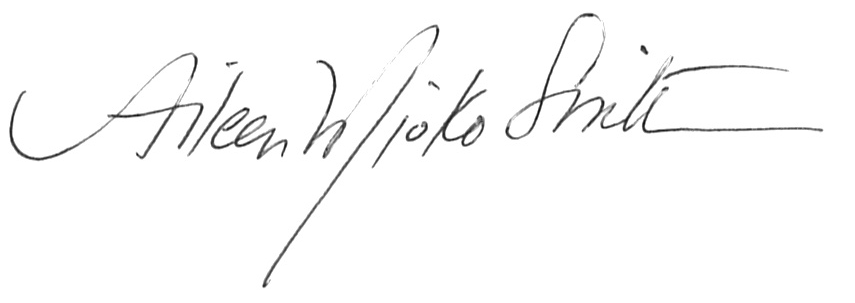 Aileen Mioko Smith